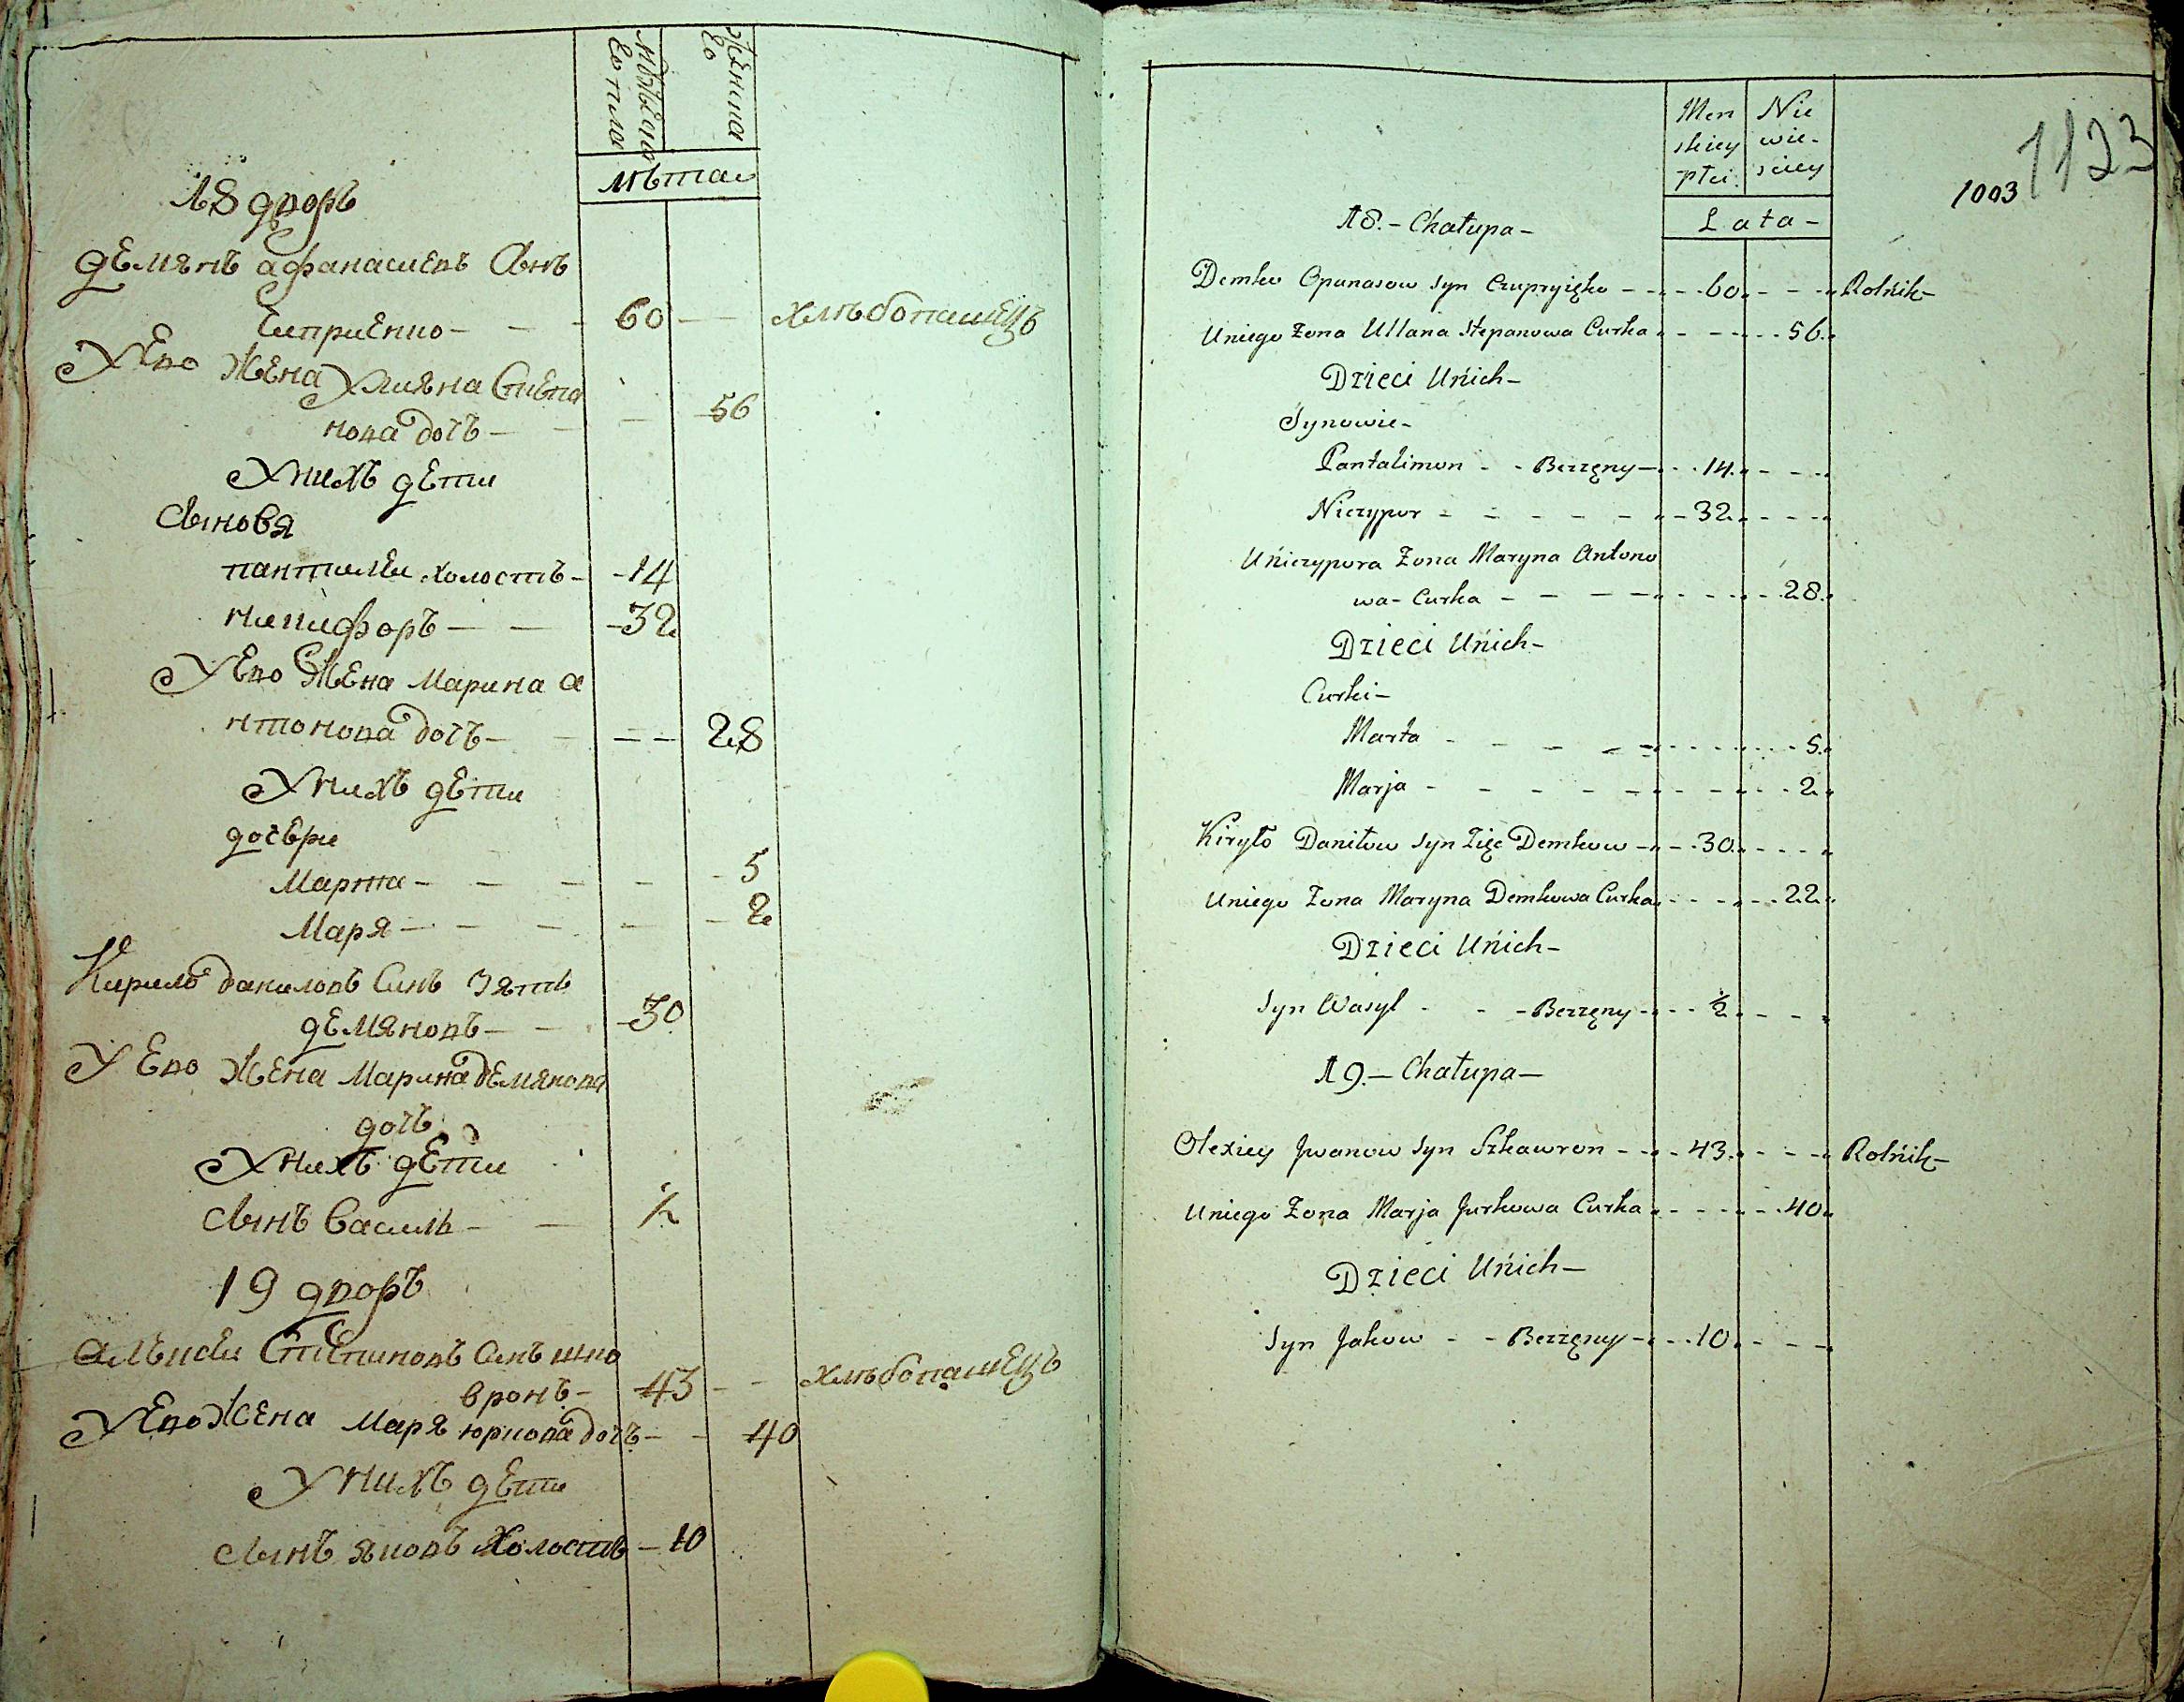 мужеска
го пола
женска
го
лѣта
18 дворъ
демянъ афанасиевъ Сынъ
60 хлѣбопашецъ
У Его Жена Улияна Степа
нова дочъ 56
У нихъ дети
Сыновя
пантилеи холостъ 14
никифоръ 32
У Его Жена Марина а
нтонова дочъ 28
У нихъ дети
дочери
Марта 5
Маря 2
Кирило даниловъ Синъ Зять
демяновъ 30
У Его Жена Марина демянова
дочъ
У нихъ дети
Сынъ Василь ½
19 дворъ
алѣксеи Синъ шка
вронъ 43 хлѣбопашецъ
У Его Жена Маря юркова дочъ 40
У нихъ дети
Сынъ яковъ Холостъ 10
Men
skiey
płci
Nie
wie-
sciey
Lata
1123
1003
18. Chałupa
Demko Opanasow Syn 60 Rolnik
Uniego Zona Ullana Stepanowa Curka 56
Dzieci Unich
Synowie
Pantalimon Bezzęny 14
Niczypor 32
Uniczypora Zona Maryna Antono
wa Curka 28
Dzieci Unich
Curki
Marta 5
Marja 2
Kiryło Daniłow Syn Zięc Demkow 30
Uniego Zona Maryna Demkowa Curka 22
Dzieci Unich
Syn Wasyl Bezzęny ½
19. Chałupa
Olexiey Jwanow Syn Szkawron 43 Rolnik
Uniego Zona Marja Jurkowa Curka 40
Dzieci Unich
Syn Jakow Bezzęny 10